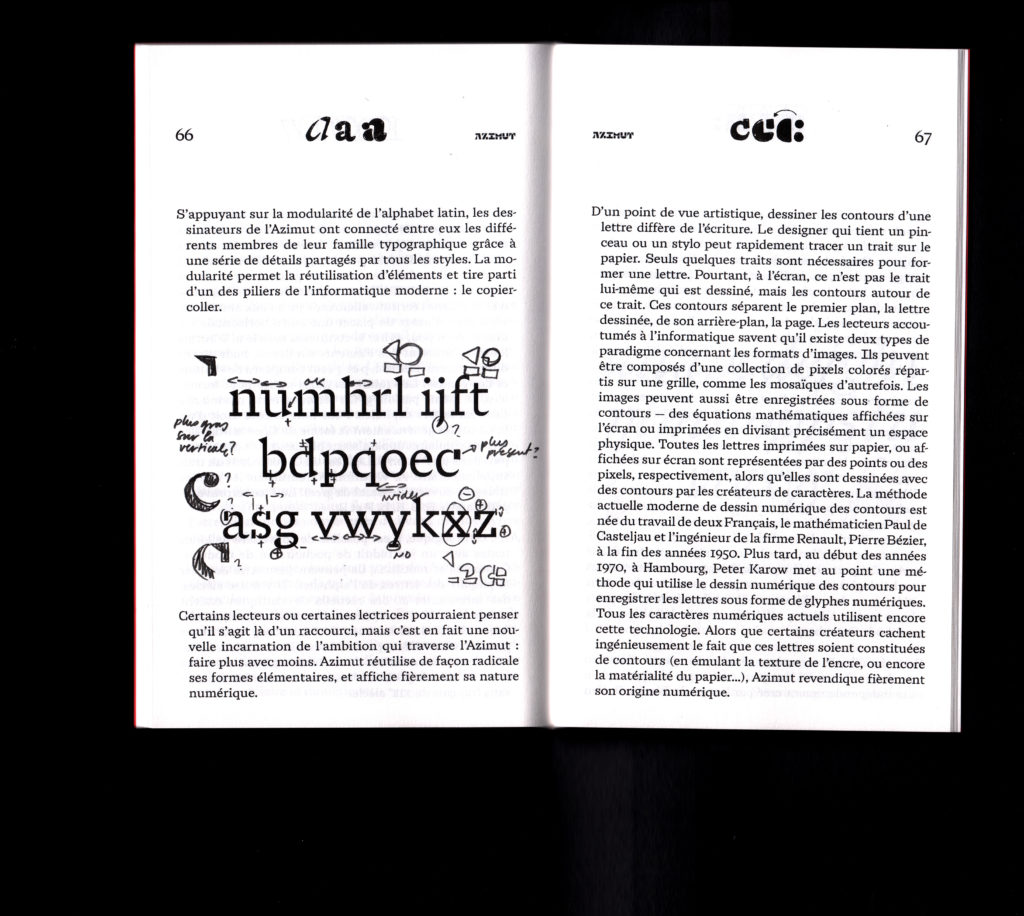 66
a a a
AZIMUT
S’appuyant sur la modularité de l’alphabet latin, les des-
sinateurs de l’Azimut ont connecté entre eux les diffé-
rents membres de leur famille typographique grâce à
une série de détails partagés par tous les styles. La mo-
dularité permet la réutilisation d’éléments et tire parti
d’un des piliers de l’informatique moderne : le copier-
coller.
ok
numhrl ijft
?
plus gras
sur la
verticale?
bdpqoec
plus
présent?
?
wider
asg vwykxz
?
NO
Certains lecteurs ou certaines lectrices pourraient penser
qu’il s’agit là d’un raccourci, mais c’est en fait une nou-
velle incarnation de l’ambition qui traverse l’Azimut :
faire plus avec moins. Azimut réutilise de façon radicale
ses formes élémentaires, et affiche fièrement sa nature
numérique.
AZIMUT
c c c
67
D’un point de vue artistique, dessiner les contours d’une
lettre diffère de l’écriture. Le designer qui tient un pin-
ceau ou un stylo peut rapidement tracer un trait sur le
papier. Seuls quelques traits sont nécessaires pour for-
mer une lettre. Pourtant, à l’écran, ce n’est pas le trait
lui-même qui est dessiné, mais les contours autour de
ce trait. Ces contours séparent le premier plan, la lettre
dessinée, de son arrière-plan, la page. Les lecteurs accou-
tumés à l’informatique savent qu’il existe deux types de
paradigme concernant les formats d’images. Ils peuvent
être composés d’une collection de pixels colorés répar-
tis sur une grille, comme les mosaïques d’autrefois. Les
images peuvent aussi être enregistrées sous forme de
contours — des équations mathématiques affichées sur
l’écran ou imprimées en divisant précisément un espace
physique. Toutes les lettres imprimées sur papier, ou af-
fichées sur écran sont représentées par des points ou des
pixels, respectivement, alors qu’elles sont dessinées avec
des contours par les créateurs de caractères. La méthode
actuelle moderne de dessin numérique des contours est
née du travail de deux Français, le mathématicien Paul de
Casteljau et l’ingénieur de la firme Renault, Pierre Bézier,
à la fin des années 1950. Plus tard, au début des années
1970, à Hambourg, Peter Karow met au point une mé-
thode qui utilise le dessin numérique des contours pour
enregistrer les lettres sous forme de glyphes numériques.
Tous les caractères numériques actuels utilisent encore
cette technologie. Alors que certains créateurs cachent
ingénieusement le fait que ces lettres soient constituées
de contours (en émulant la texture de l’encre, ou encore
la matérialité du papier…), Azimut revendique fièrement
son origine numérique.